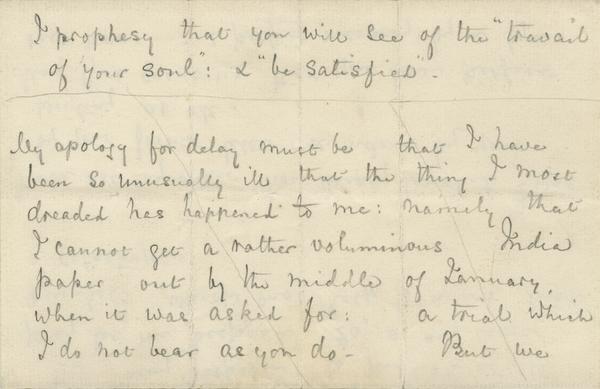 I prophesy that you will see of the "travail
of your soul": & "be satisfied" -
My apology for delay must be that I have
been so unusually ill that the thing I most
dreaded has happened to me: namely that
I cannot get a rather voluminous India
paper out by the middle of January,
when it was asked for: a trial which
I do not bear as you do - But we